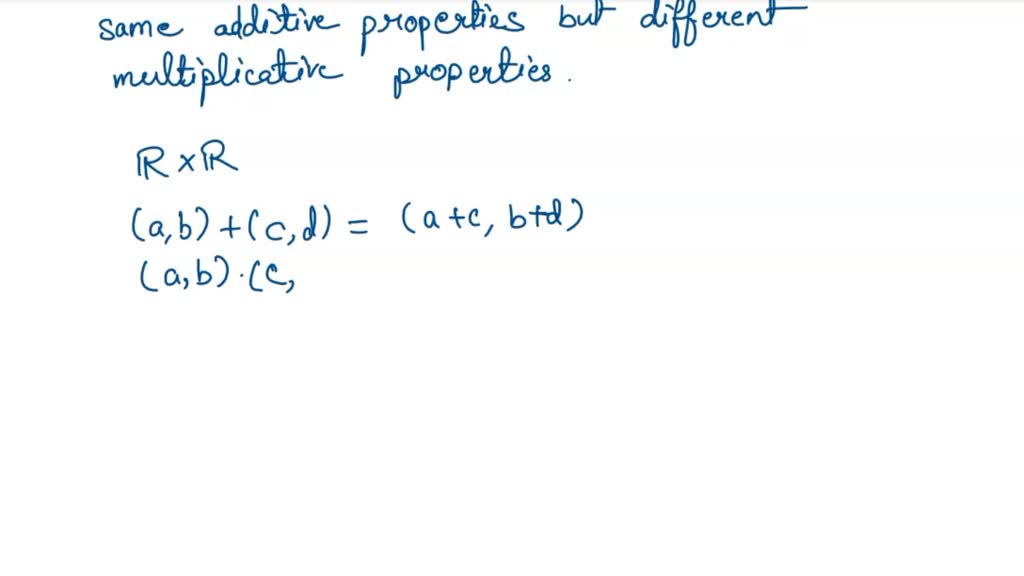 same additive properties but different
multiplicative properties.
ℝ×ℝ
(a,b)+(c,d) = (a+c, b+d)
(a,b)·(c,